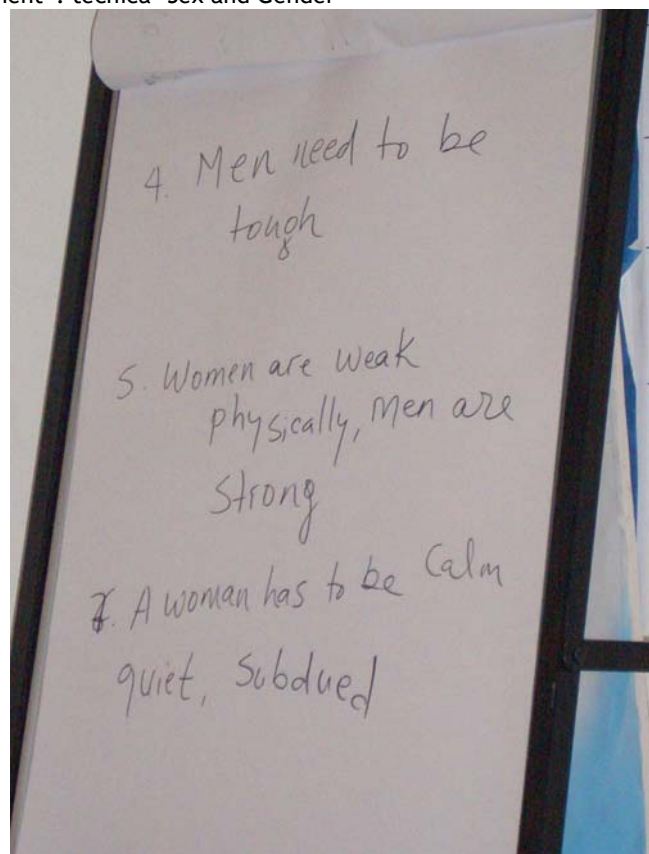 4. Men need to be
tough
5. Women are weak
physically, Men are
strong
7. A woman has to be Calm
quiet, Subdued